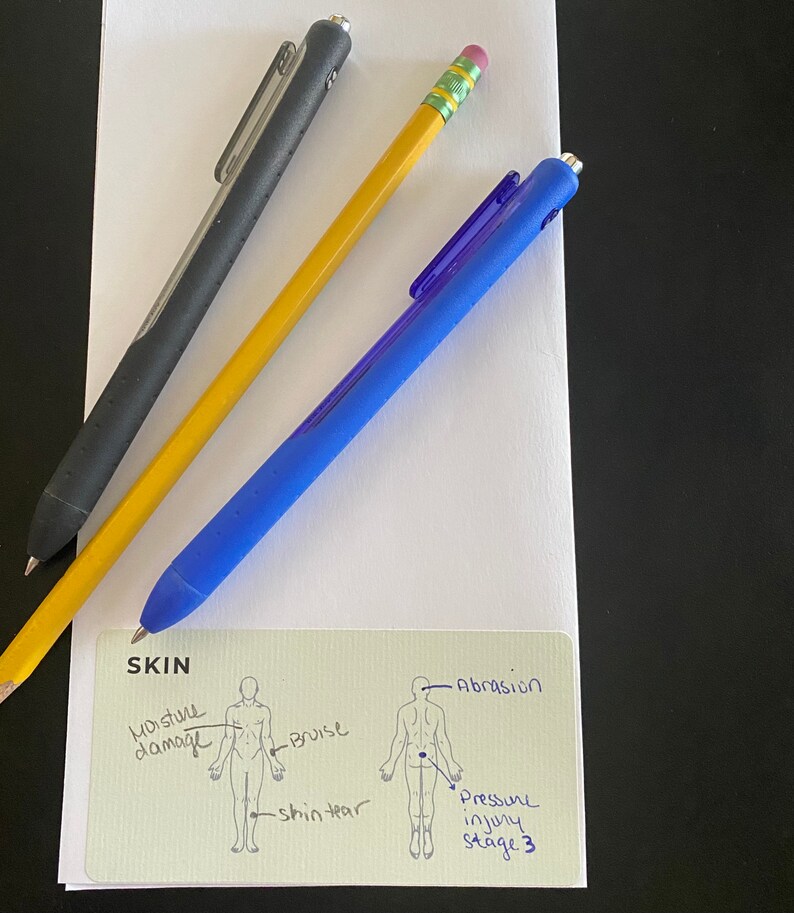 SKIN
Moisture
damage
Bruise
skin tear
Abrasion
Pressure
injury
stage 3